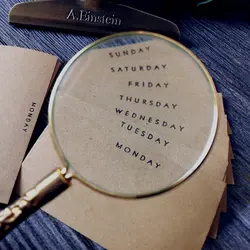 A.Einstein
SUNDAY
SATURDAY
FRIDAY
THURSDAY
WEDNESDAY
TUESDAY
MONDAY
MONDAY